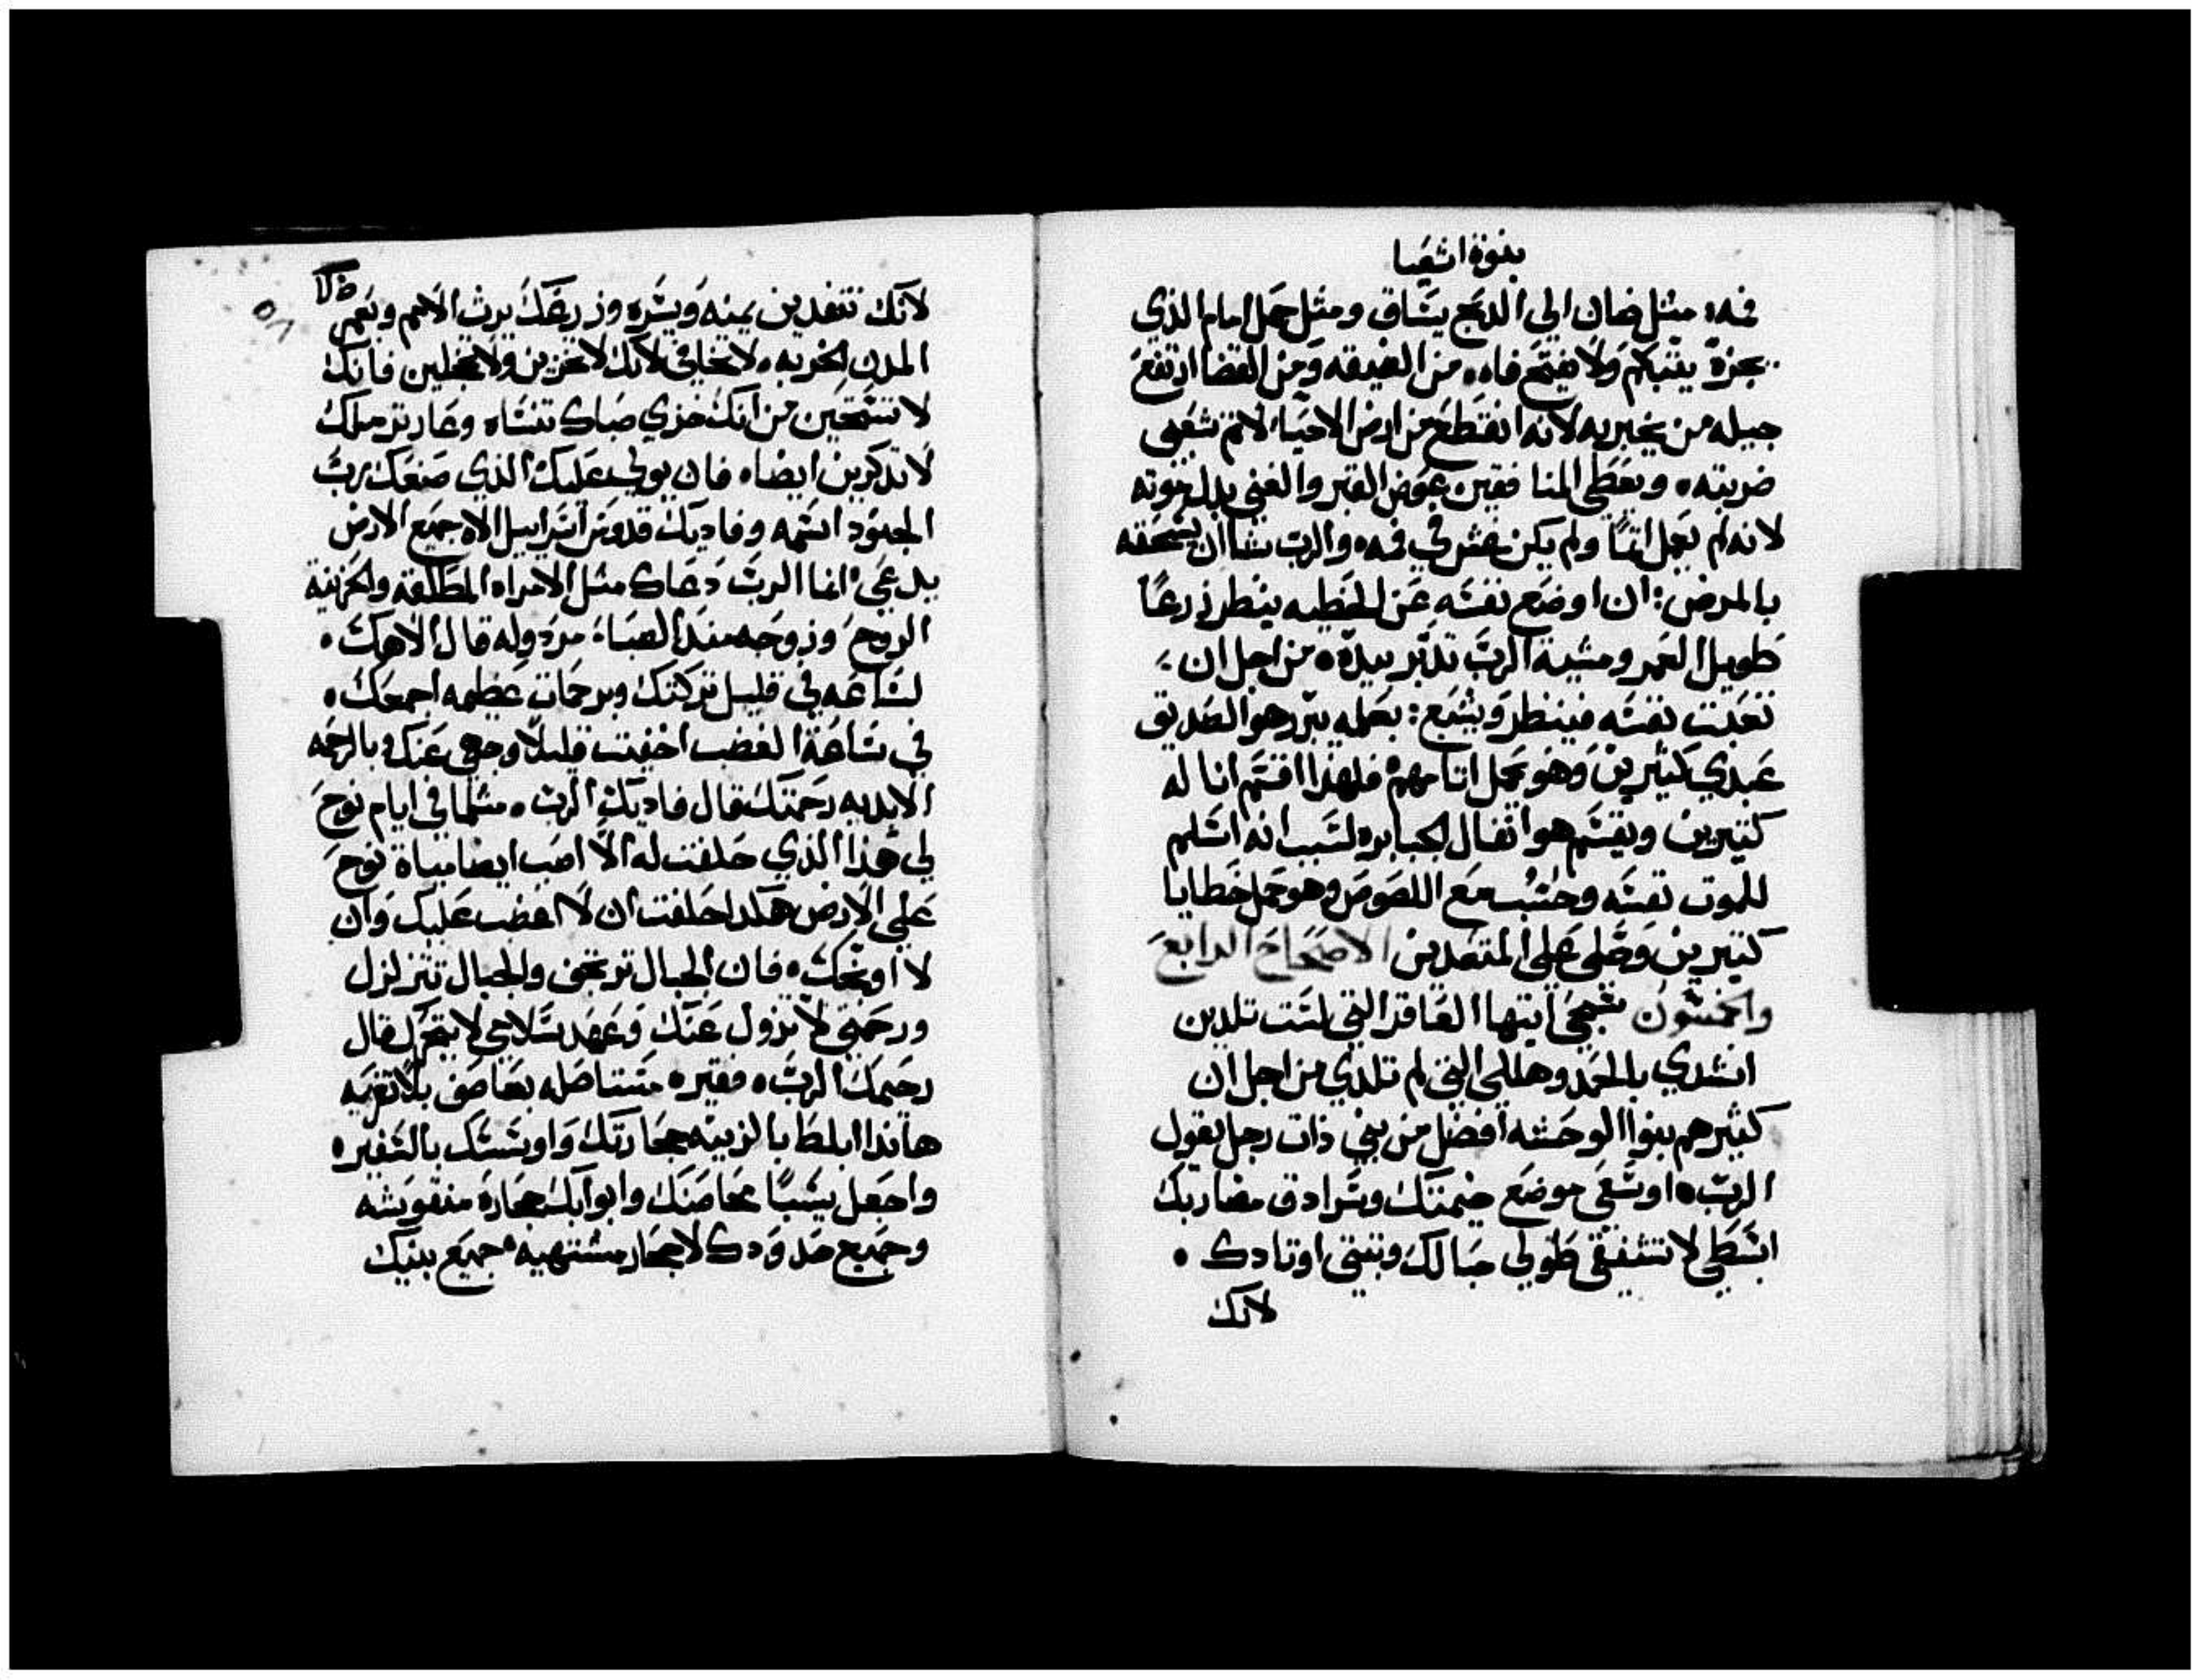 بنوة اشعيا
فه، مثل ضان الي الدبح يساق ومثل حمل امام الذي
يجزه يتبكم ولا يفتح فاه، من الضيقه ومن القضا ارتفع
جيله من يخبر به لانه انقطع من ارض الاحيا، لاثم شعبي
ضربته، ويعطي المنافقين عوض القبر والغني بدل موته
لانه لم يعمل اثمًا ولم يكن غش في فه، والرب شا ان يسحقه
بالمرض: ان اوضع نفسه عن الخطيه ينظر زرعًا
طويل العمر ومشية الرب تدبر بيده، من اجل ان
تعبت نفسه فينظر ويشبع: بعمله يبرر هو الصديق
عبدي كثيرين وهو يحمل اثامهم فلهذا اقسم انا له
كثيرين ويقسم هو اثقال الجبابره لسبب انه اسلم
للموت نفسه وحسب مع اللصوص وهو حمل خطايا
كثيرين وصلى على المتعديين الاصحاح الرابع
والخمسون سبحي ايتها العاقر التي لست تلدين
انشدي بالحمد وهللي التي لم تلدي من اجل ان
كثير هم بنوا الوحشه افضل من بني ذات رجل يقول
الرب، اوسعي موضع خيمتك وسرادق مضاربك
ابسطي لا تشفقي طولي حبالك وثبتي اوتادك
لانك
لانك تنفدين يمنه ويسره وزرعك يرث الامم ويعمر
المدن الخربه، لا تخافي لانك لا تخزين ولا تخجلين فانك
لا تستحين من انك خزي صباك تنساه وعار ترملك
لا تدكرين ايضا، فان يولي عليك الذي صنعك رب
الجنود اسمه وفاديك قدوس اسراييل الاه جميع الارض
يدعي، انما الرب دعاك مثل الامراه المطلقه والحزينة
الروح وزوجه منذ الصبا، مردوله قال الاهك
لساعه في قليل تركتك وبرحمات عظيمه اجمعك
في ساعة الغضب اخفيت قليلًا وجهي عنك وبالرحمه
الابديه رحمتك قال فاديك الرب، مثلما في ايام نوح
لي هذا الذي حلفت له الا اصب ايضا مياة نوح
على الارض هكدا حلفت ان لا اغضب عليك وان
لا اوبخك، فان الجبال ترتجف والجبال تتزلزل
ورحمتي لا تزول عنك وعهد سلامي لا يتحرك قال
رحيمك الرب، فقيره مستاصله بعاصف بلا تعزيه
هانذا ابلط بالزينه حجارتك واوسسك بالسفير
واجعل يشبًا محاصنك وابوابك حجارة منقوشه
وجميع حدودك لاحجار مشتهيه، جميع بنيك